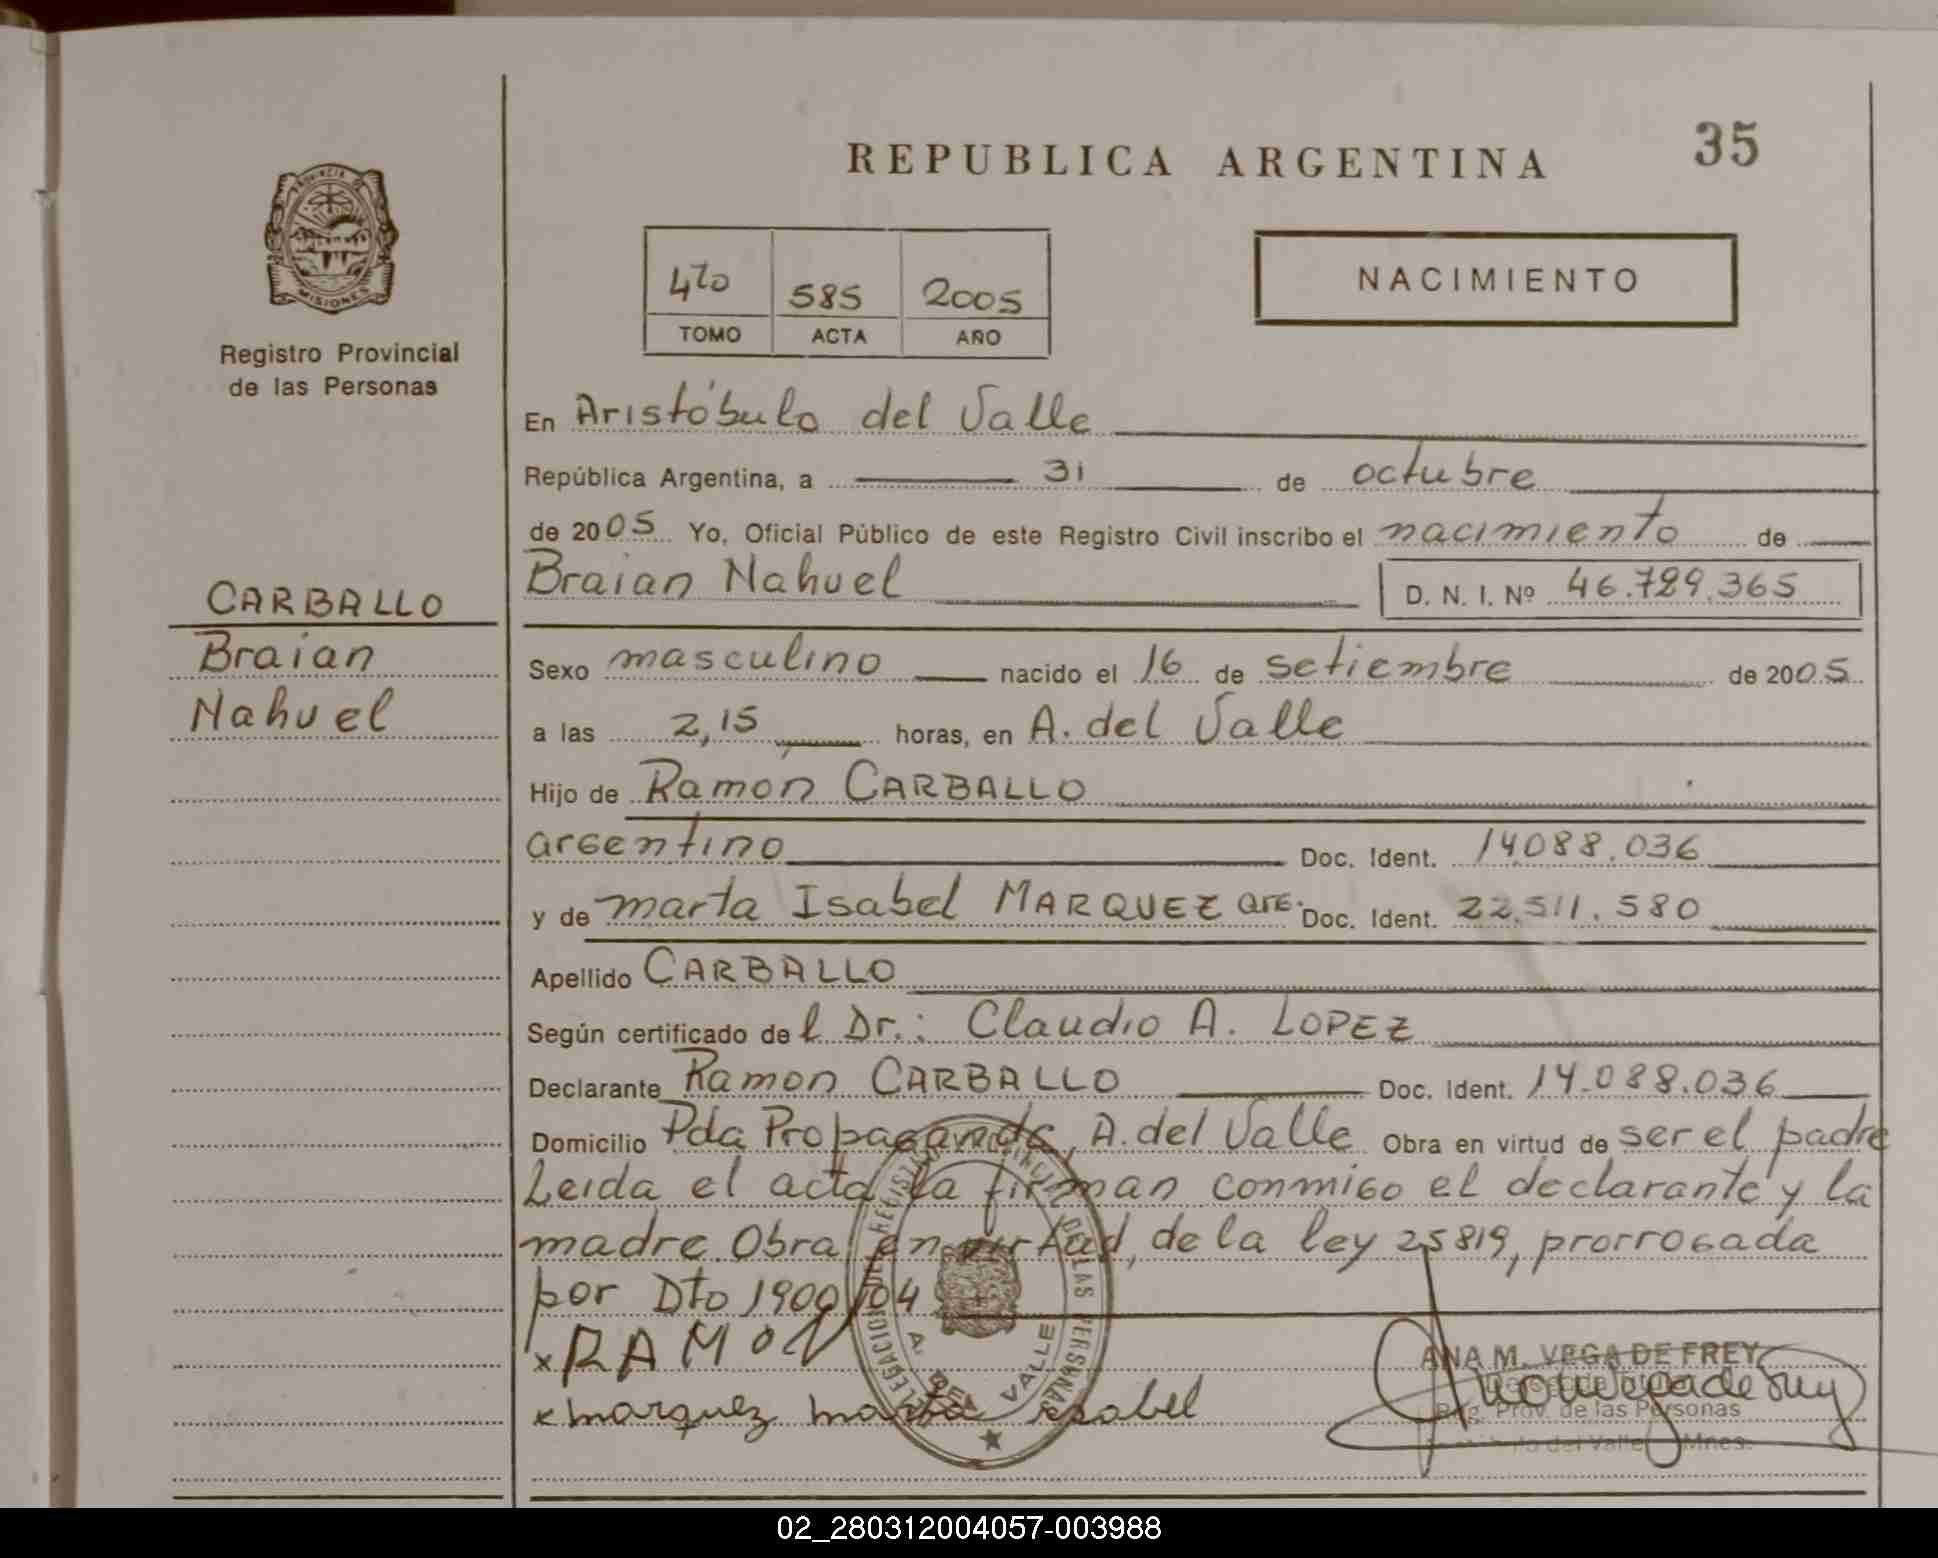 REPUBLICA ARGENTINA
35
PROVINCIA DE
MISIONES
Registro Provincial
de las Personas
4to 585 2005
TOMO ACTA AÑO
NACIMIENTO
En Aristóbulo del Valle
República Argentina, a 31 de octubre
de 2005 Yo, Oficial Público de este Registro Civil inscribo el nacimiento de
Braian Nahuel D. N. I. Nº 46.789.365
CARBALLO
Braian
Nahuel
Sexo masculino nacido el 16 de setiembre de 2005
a las 2,15 horas, en A. del Valle
Hijo de Ramon CARBALLO
argentino Doc. Ident. 14.088.036
y de marta Isabel MARQUEZ arg. Doc. Ident. 22.511.580
Apellido CARBALLO
Según certificado del Dr.: Claudio A. LOPEZ
Declarante Ramon CARBALLO Doc. Ident. 14.088.036
Domicilio Pda Propaganda, A. del Valle Obra en virtud de ser el padre
Leida el acta la firman conmigo el declarante y la
madre. Obra en virtud, de la ley 25819, prorrogada
por Dto 1900/04
x RAMON
x marquez marta isabel
DELEGACION REGISTRO PROVINCIAL DE LAS PERSONAS
A. DEL VALLE
ANA M. VEGA DE FREY
Reg. Prov. de las Personas
del Valle Mnes.
02_280312004057-003988